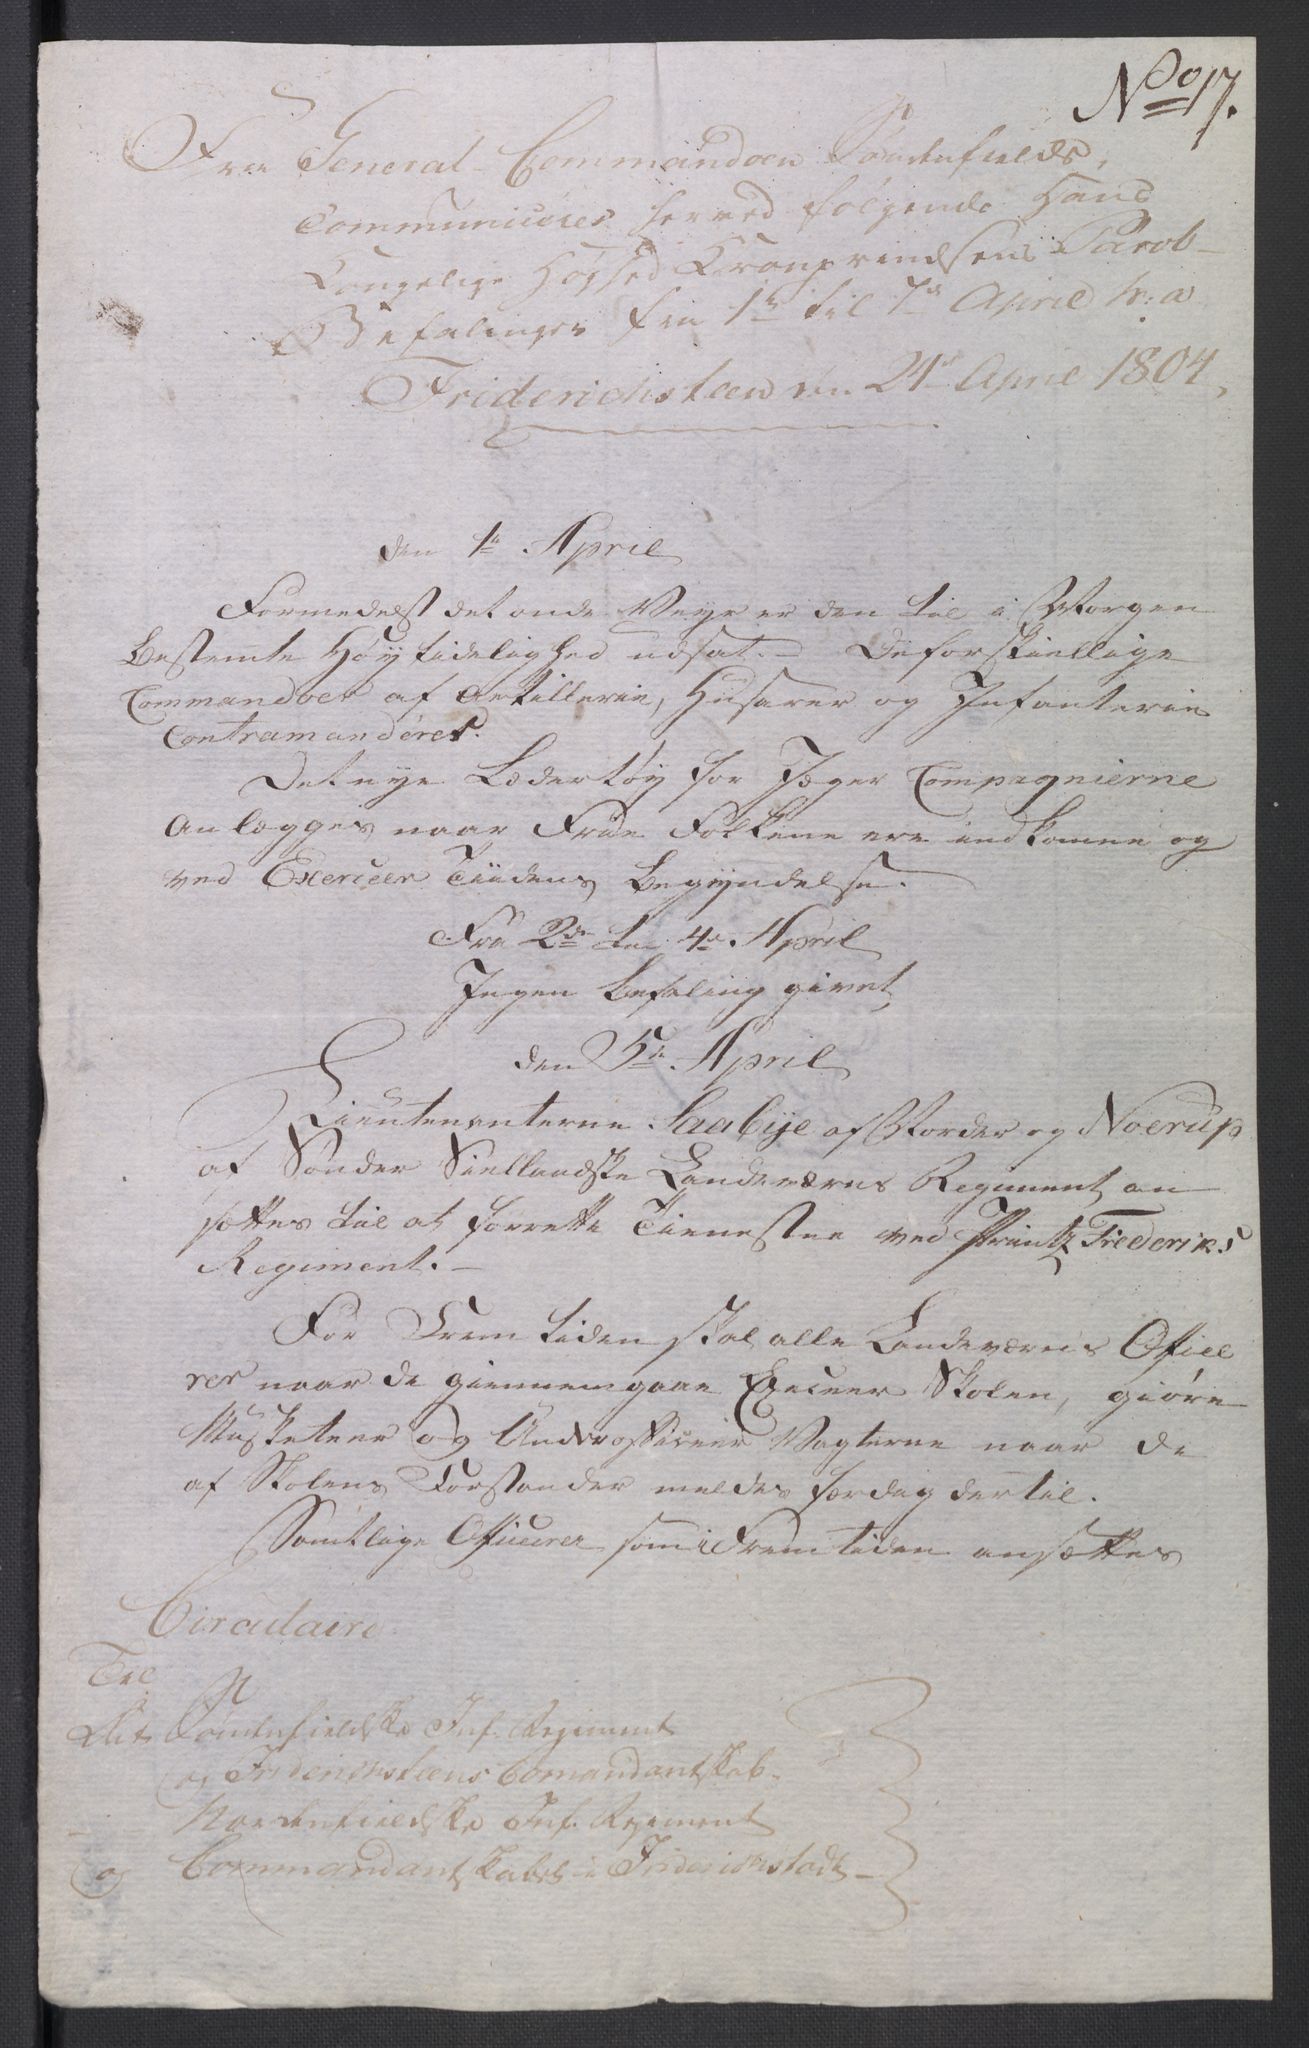 No 17.
Fra General-Commandoen Söndenfields,
Communiceres herved følgende Hans
Kongelige Høyhed Kronprindsens Parol-
Befalinger fra 1te til 7de April h: a
Friderichsteen den 21de April 1804,
den 1te April
Formedelst det onde Veyr er den til i Morgen
bestemte Høytidelighed udsat. – De forskiellige
Commandoer af Artillerie, Husarer og Infanterie
Contramanderes.
Det nye Ledertøy for Jæger Compagnierne
anlægges naar Frie Folkene ere indkomne og
ved Exerceer Tiidens Begyndelse.
Fra 2de til 4de April
Ingen Befaling givet,
den 5te April
Lieutenanterne Saabye af Norder og Noerup
af Sönder Siellandske Landeværns Regiment an
sættes til at forrette Tienesten ved Printz Frederiks
Regiment. –
For Fremtiden skal alle Landeværns Officc
rer naar de giennemgaae Exerceer Skolen, giöre
Musketeer og Underofficeer Vagterne naar de
af Skolens Forstander meldes færdig dertil.
Samtlige Officerer som i Fremtiden ansættes
Circulaire
Til
Det Söndenfieldske Inf. Regiment
og Friderichsteens Comandantskab.
Nordenfieldske Inf. Regiment
og Commandantskabet i Friderichstadt –